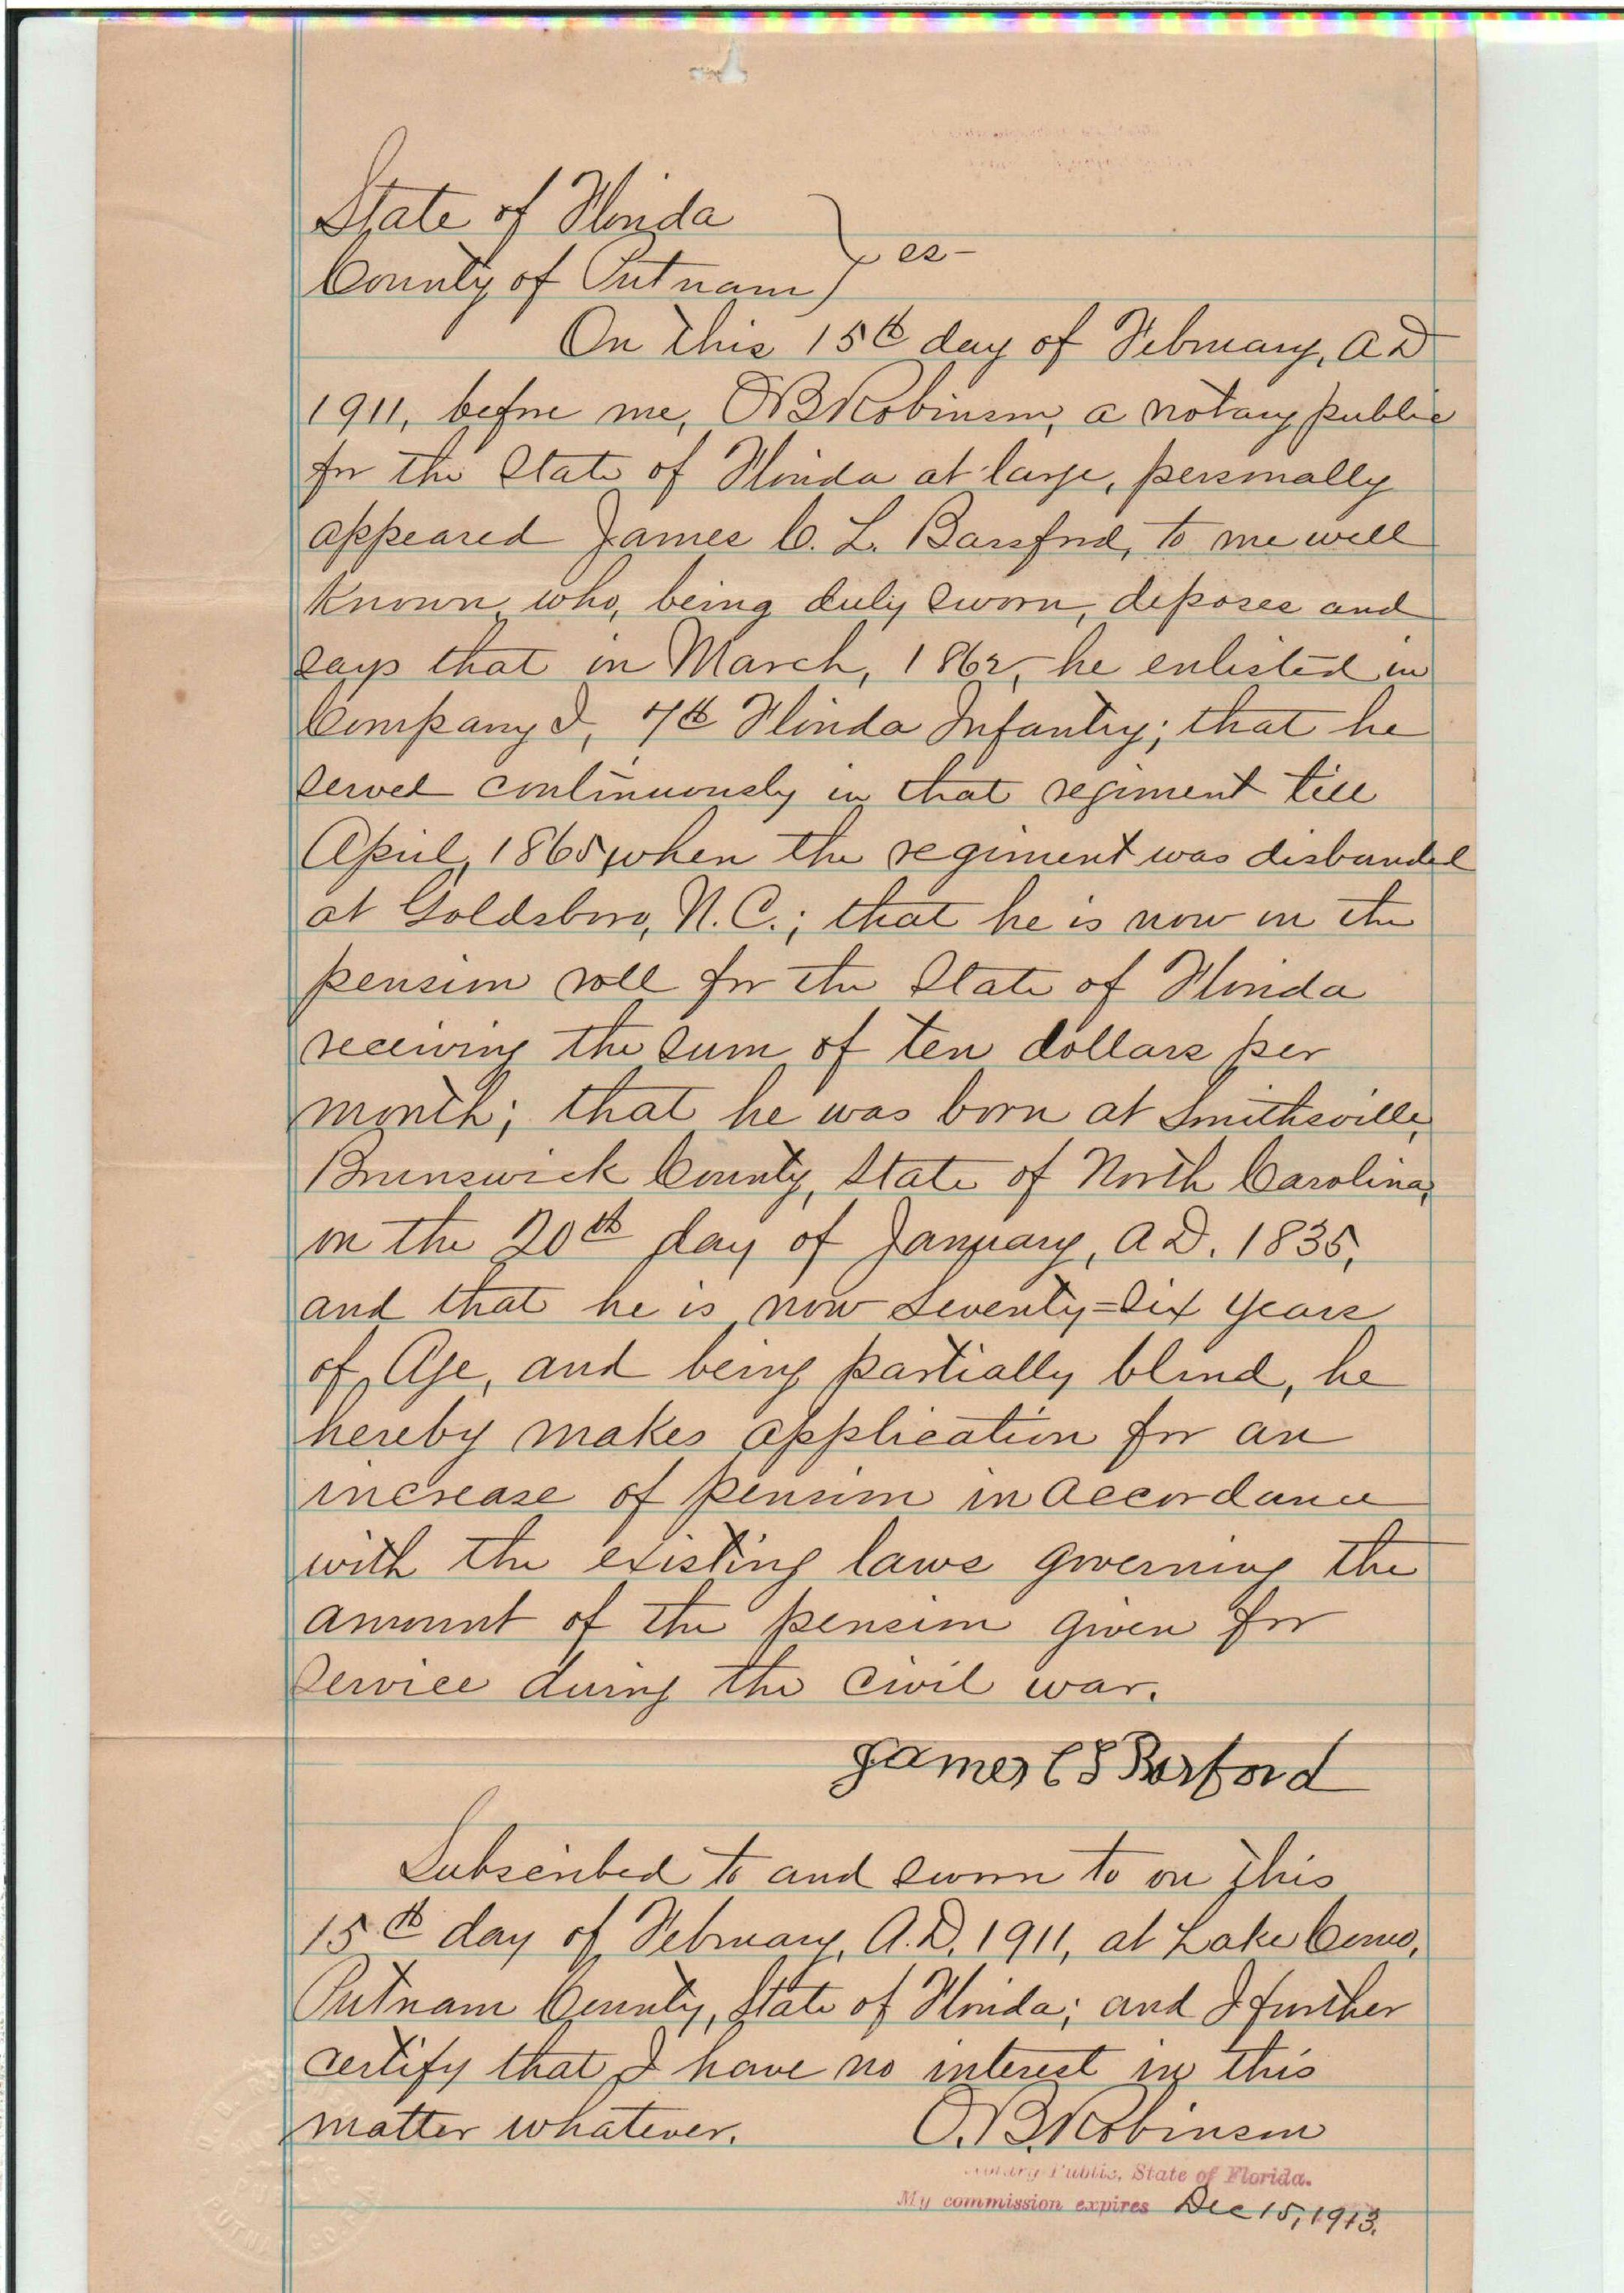 State of Florida
County of Putnam } ss-
On this 15th day of February, A D
1911, before me, O B Robinson, a notary public
for the State of Florida at large, personally
appeared James C. L. Barsford, to me well
known, who, being duly sworn, deposes and
says that in March, 1862, he enlisted in
Company I, 7th Florida Infantry; that he
served continuously in that regiment till
April, 1865, when the regiment was disbanded
at Goldsboro, N.C.; that he is now on the
pension roll for the State of Florida
receiving the sum of ten dollars per
month; that he was born at Smithsville,
Brunswick County, State of North Carolina,
on the 20th day of January, A D. 1835,
and that he is now seventy=six years
of Age, and being partially blind, he
hereby makes application for an
increase of pension in accordance
with the existing laws governing the
amount of the pension given for
service during the civil war.
James C L Barford
Subscribed to and sworn to on this
15th day of February, A.D. 1911, at Lake Como,
Putnam County, State of Florida; and I further
certify that I have no interest in this
matter whatever. O. B. Robinson
Notary Public, State of Florida.
My commission expires Dec 15, 1913.